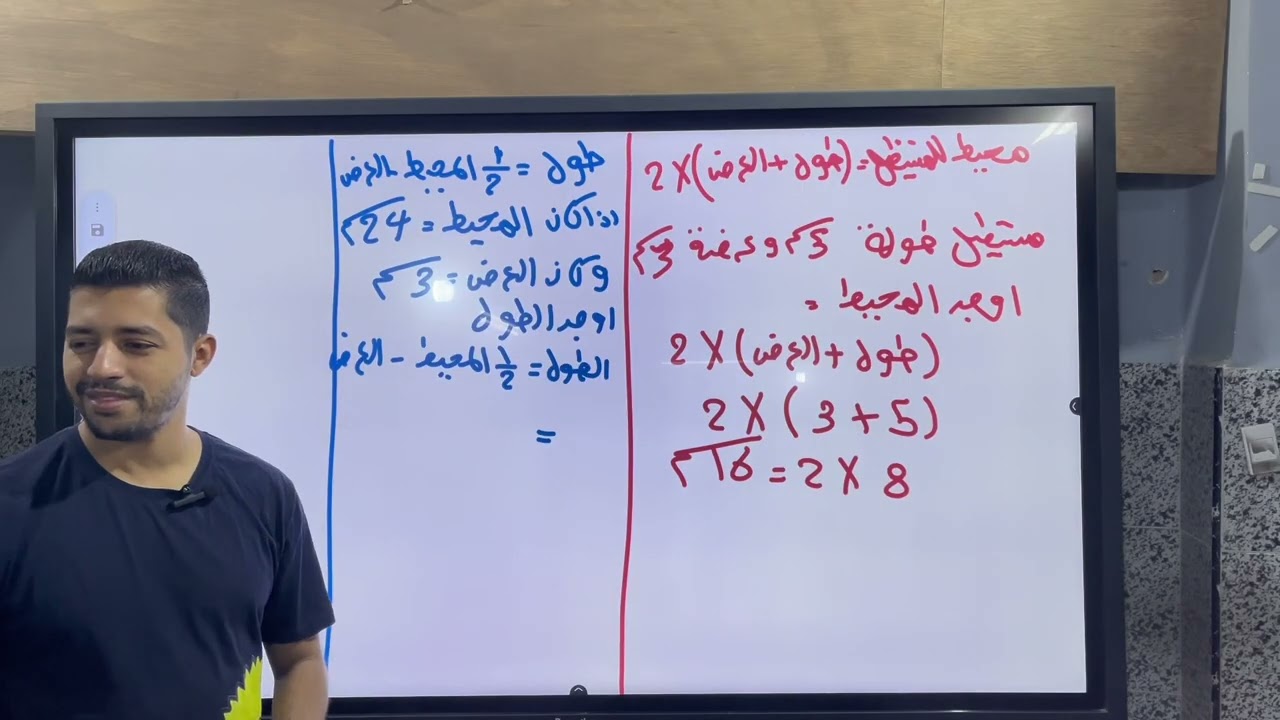 محيط المستطيل = (طول + العرض) × 2
مستطيل طولة 5سم وعرضة 3سم
اوجد المحيط =
(طول + العرض) × 2
(5 + 3) × 2
8 × 2 = 16سم
طول = 1/2 المحيط - العرض
اذا كان المحيط = 24سم
وكان العرض = 3سم
اوجد الطول
الطول = 1/2 المحيط - العرض
=